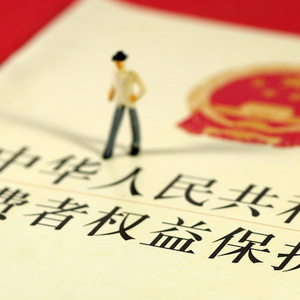 中华人民共和
费者权益保护